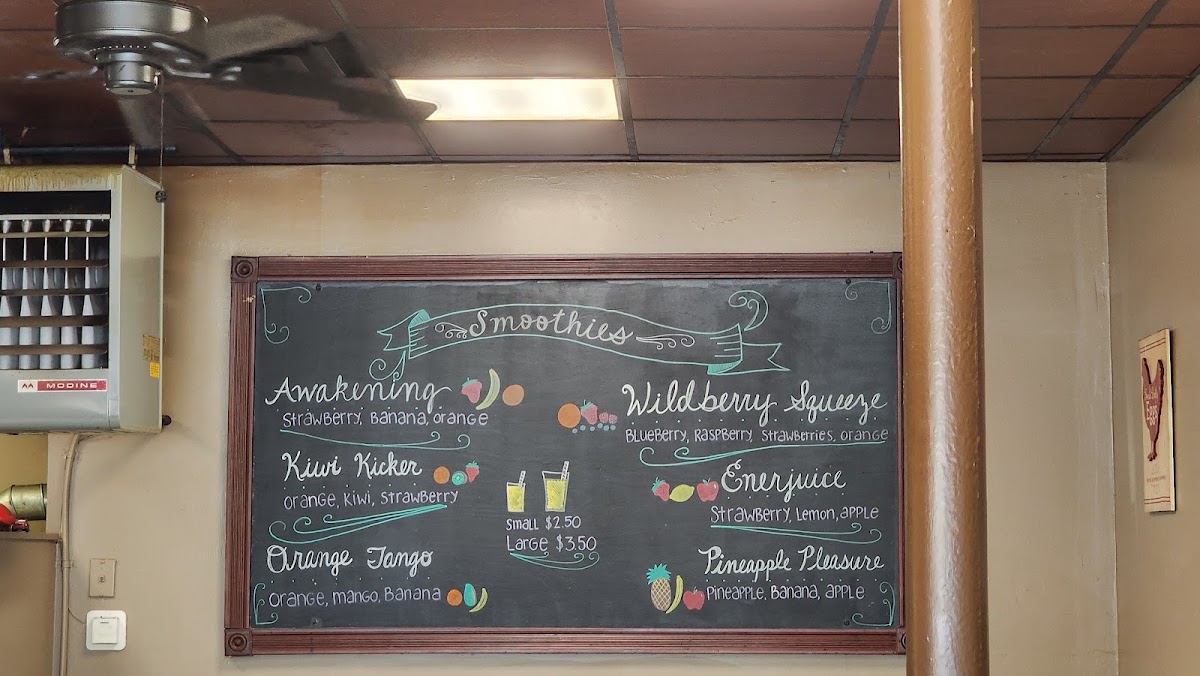 Smoothies
Awakening
Strawberry, Banana, orange
Kiwi Kicker
orange, Kiwi, Strawberry
Orange Tango
orange, mango, Banana
Small $2.50
Large $3.50
Wildberry Squeeze
Blueberry, Raspberry, Strawberries, orange
Enerjuice
Strawberry, Lemon, apple
Pineapple Pleasure
Pineapple, Banana, apple
MODINE